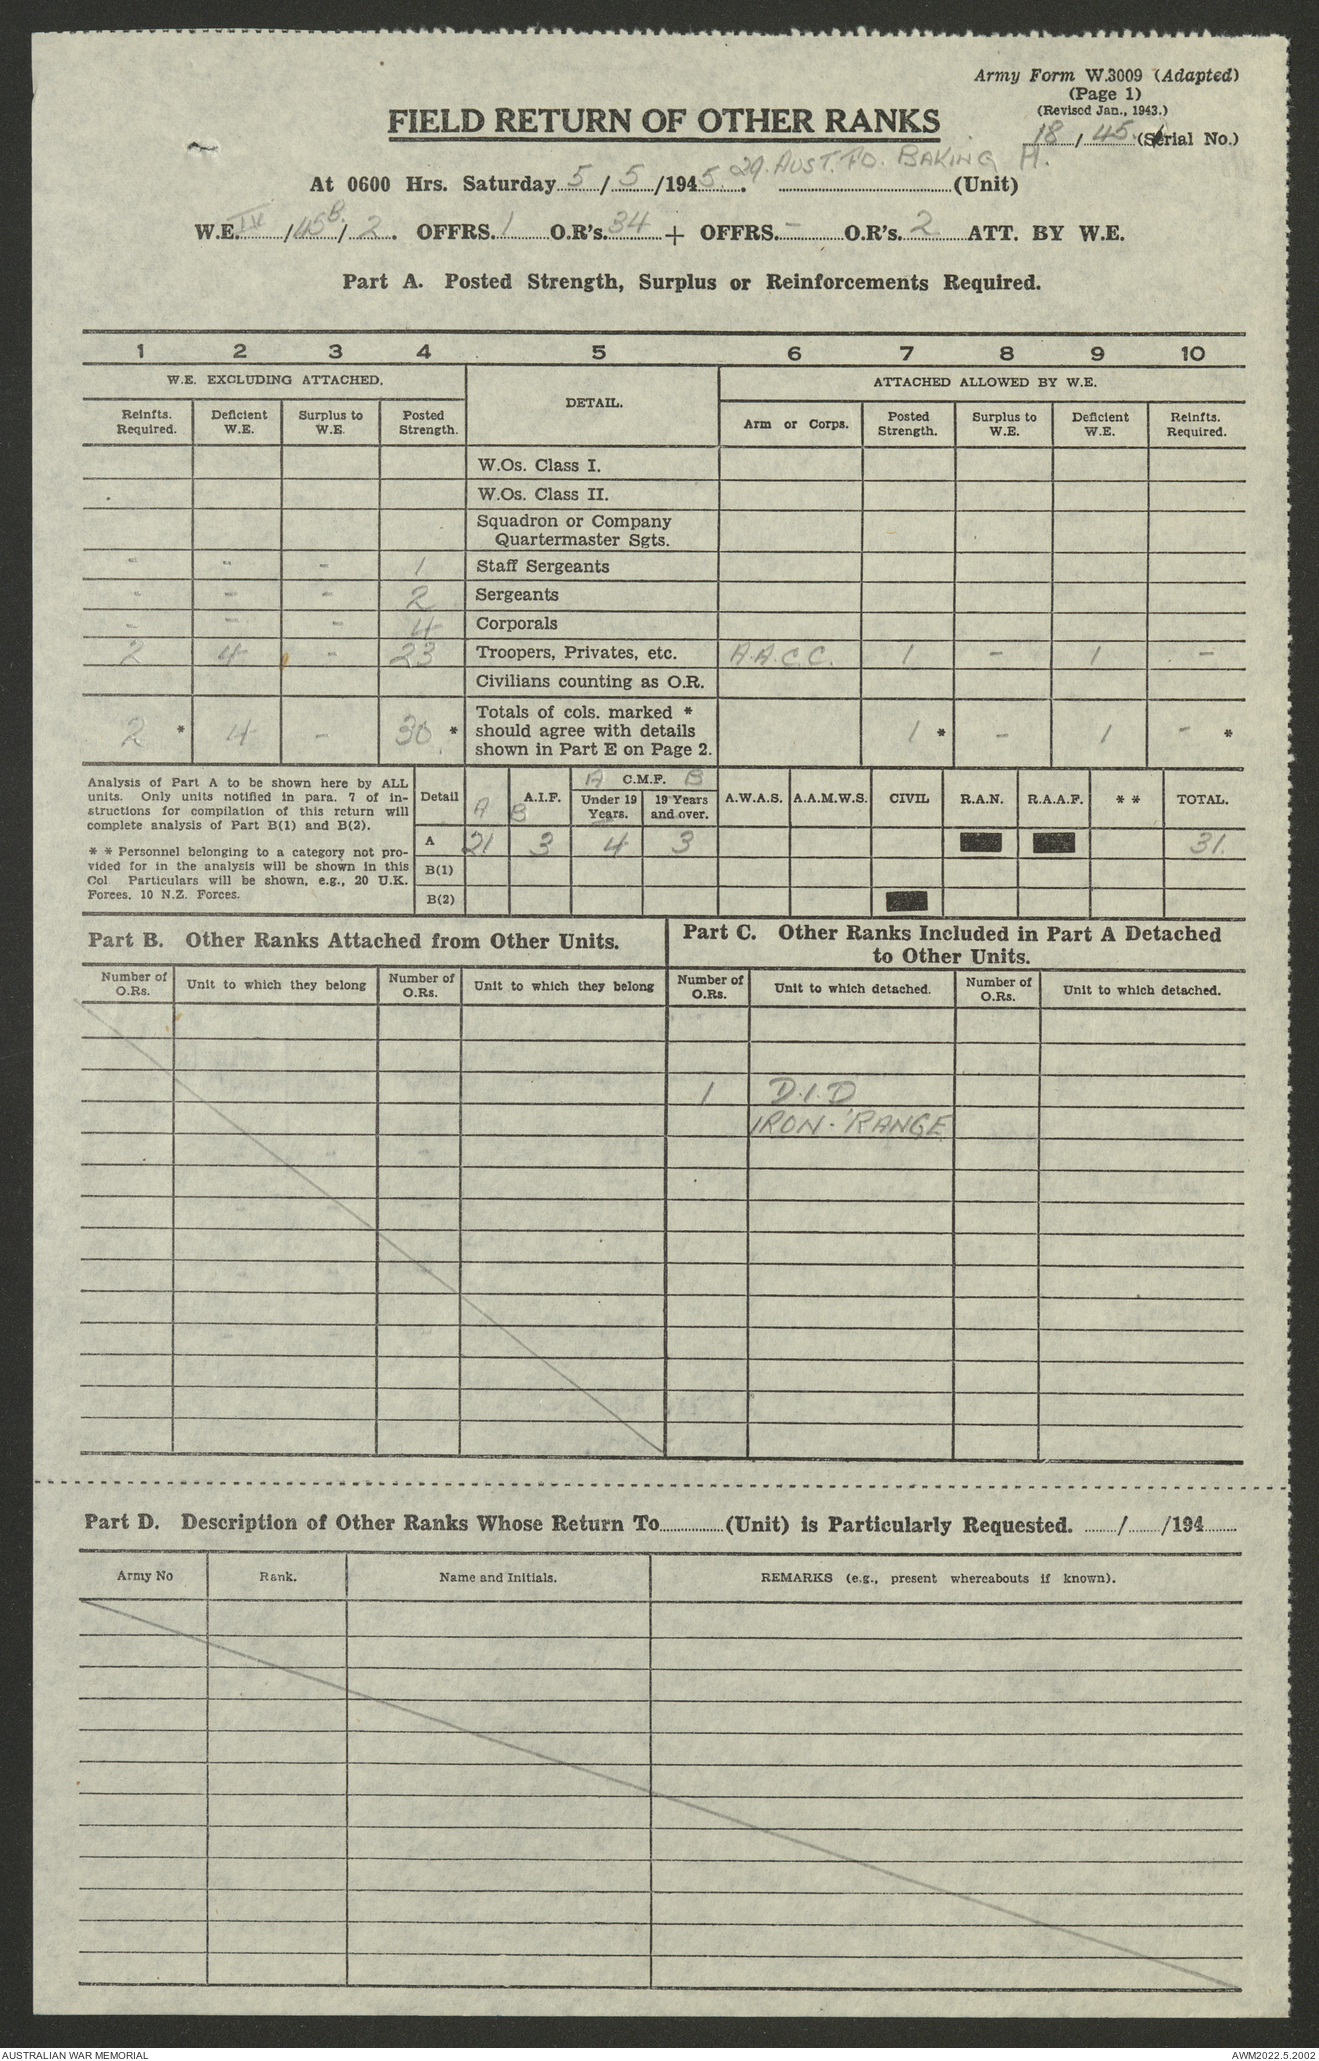 Army Form W.3009 (Adapted)
(Page 1)
(Revised Jan., 1943.)
FIELD RETURN OF OTHER RANKS
18 / 45 (Serial No.)
At 0600 Hrs. Saturday 5 / 5 /1945. 29. AUST. FD. BAKING Pl. (Unit)
W.E. IV /45B/ 2. OFFRS. 1 O.R's. 34 + OFFRS. - O.R's. 2 ATT. BY W.E.
Part A. Posted Strength, Surplus or Reinforcements Required.
1 2 3 4 5 6 7 8 9 10
W.E. EXCLUDING ATTACHED. DETAIL. ATTACHED ALLOWED BY W.E.
Reinfts. Required. Deficient W.E. Surplus to W.E. Posted Strength. Arm or Corps. Posted Strength. Surplus to W.E. Deficient W.E. Reinfts. Required.
W.Os. Class I.
W.Os. Class II.
Squadron or Company
Quartermaster Sgts.
- - - 1 Staff Sergeants
- - - 2 Sergeants
- - - 4 Corporals
2 4 - 23 Troopers, Privates, etc. A.A.C.C. 1 - 1 -
Civilians counting as O.R.
Totals of cols. marked *
2 * 4 - 30 * should agree with details 1 * - 1 - *
shown in Part E on Page 2.
Analysis of Part A to be shown here by ALL
units. Only units notified in para. 7 of in-
structions for compilation of this return will
complete analysis of Part B(1) and B(2).
* * Personnel belonging to a category not pro-
vided for in the analysis will be shown in this
Col Particulars will be shown, e.g., 20 U.K.
Forces, 10 N.Z. Forces.
Detail A B A.I.F. A C.M.F. B A.W.A.S. A.A.M.W.S. CIVIL R.A.N. R.A.A.F. * * TOTAL.
Under 19 Years. 19 Years and over.
A 21 3 4 3 31.
B(1)
B(2)
Part B. Other Ranks Attached from Other Units.
Part C. Other Ranks Included in Part A Detached
to Other Units.
Number of O.Rs. Unit to which they belong Number of O.Rs. Unit to which they belong Number of O.Rs. Unit to which detached. Number of O.Rs. Unit to which detached.
1 D.I.D
IRON - RANGE
Part D. Description of Other Ranks Whose Return To (Unit) is Particularly Requested. / /194
Army No Rank. Name and Initials. REMARKS (e.g., present whereabouts if known).
AUSTRALIAN WAR MEMORIAL AWM2022.5.2002